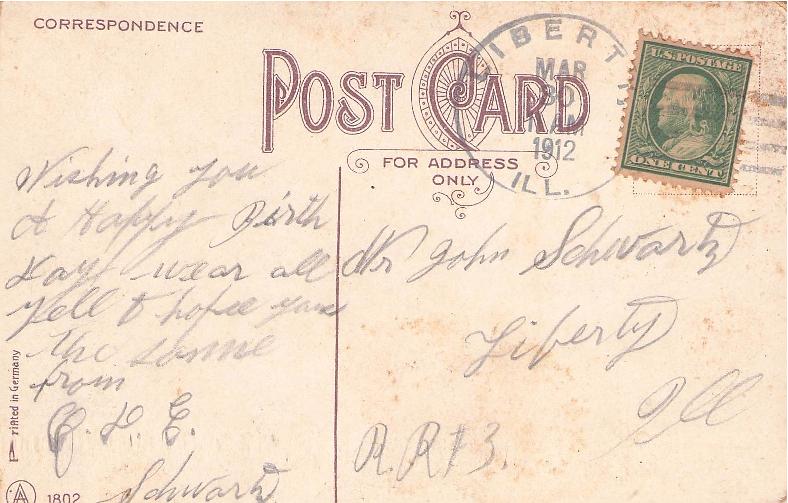 CORRESPONDENCE
POST CARD
FOR ADDRESS
ONLY
LIBERTY
MAR
30
AM
1912
ILL.
U.S. POSTAGE
ONE CENT
Wishing you
A Happy Birth
day wear all
Well & hope you
the same
from
E.
Schwartz
Mr John Schwartz
Liberty
Ill
R.R #3.
Printed in Germany
A
1802